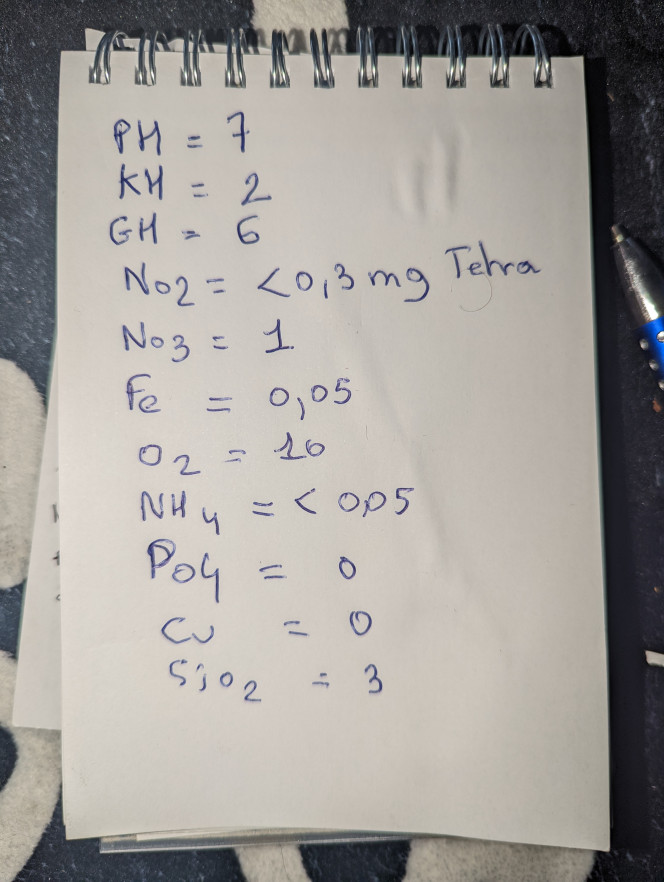 PH = 7
KH = 2
GH = 6
NO2 = <0,3 mg Tetra
NO3 = 1
Fe = 0,05
O2 = 10
NH4 = < 0,05
PO4 = 0
Cu = 0
SiO2 = 3